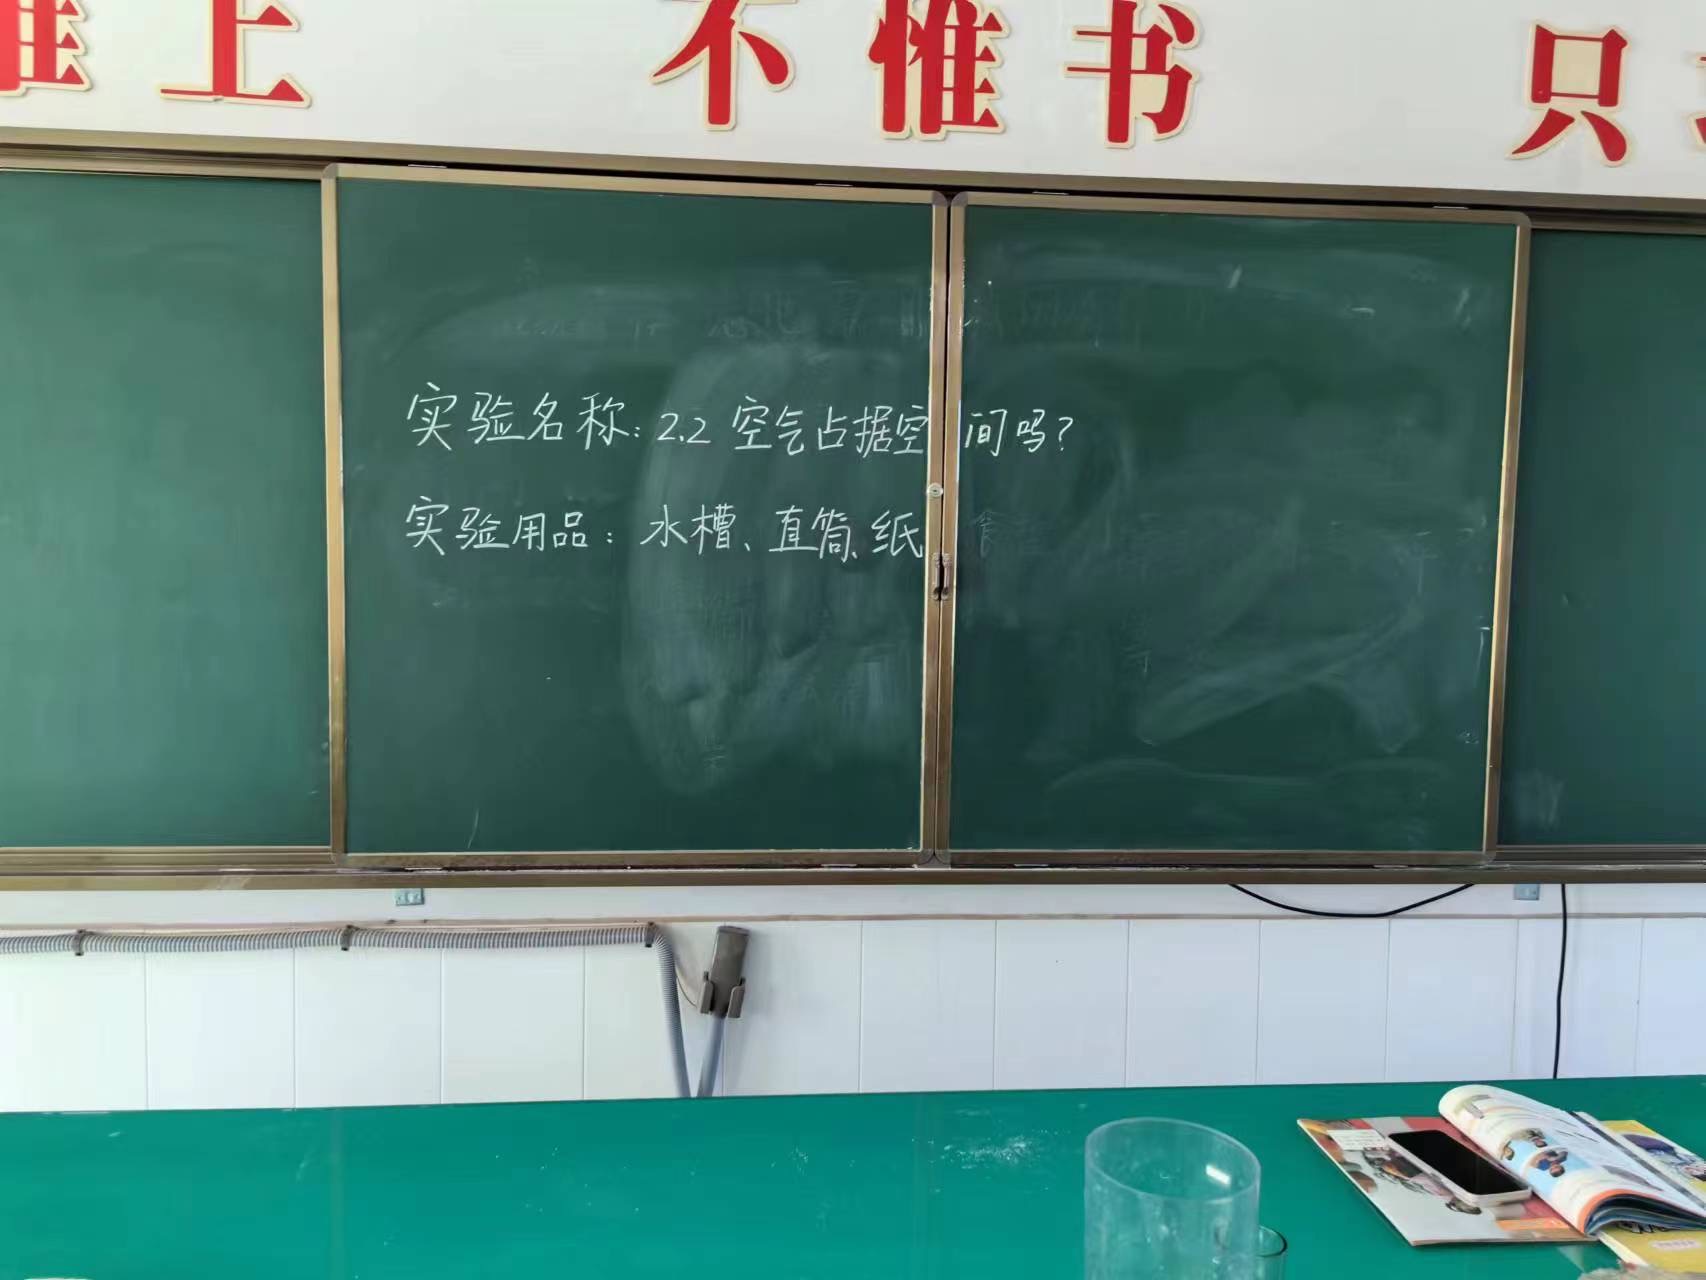 惟上 不惟书 只
实验名称：2.2 空气占据空间吗？
实验用品：水槽、直筒、纸